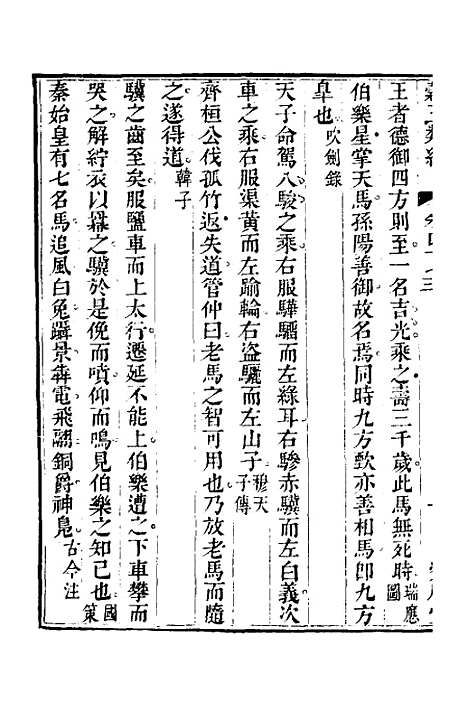 王者德御四方則至一名吉光乘之壽三千歲此馬無死時瑞應圖
伯樂星掌天馬孫陽善御故名焉同時九方歅亦善相馬卽九方
臯也吹劍錄
天子命駕八駿之乘右服驊騮而左綠耳右驂赤驥而左白義次
車之乘右服渠黃而左踰輪右盜驪而左山子穆天子傳
齊桓公伐孤竹返失道管仲曰老馬之智可用也乃放老馬而隨
之遂得道韓子
驥之齒至矣服鹽車而上太行遷延不能上伯樂遭之下車攀而
哭之解紵衣以羃之驥於是俛而噴仰而鳴見伯樂之知己也國策
秦始皇有七名馬追風白兔躡景犇電飛翮銅爵神鳧古今注